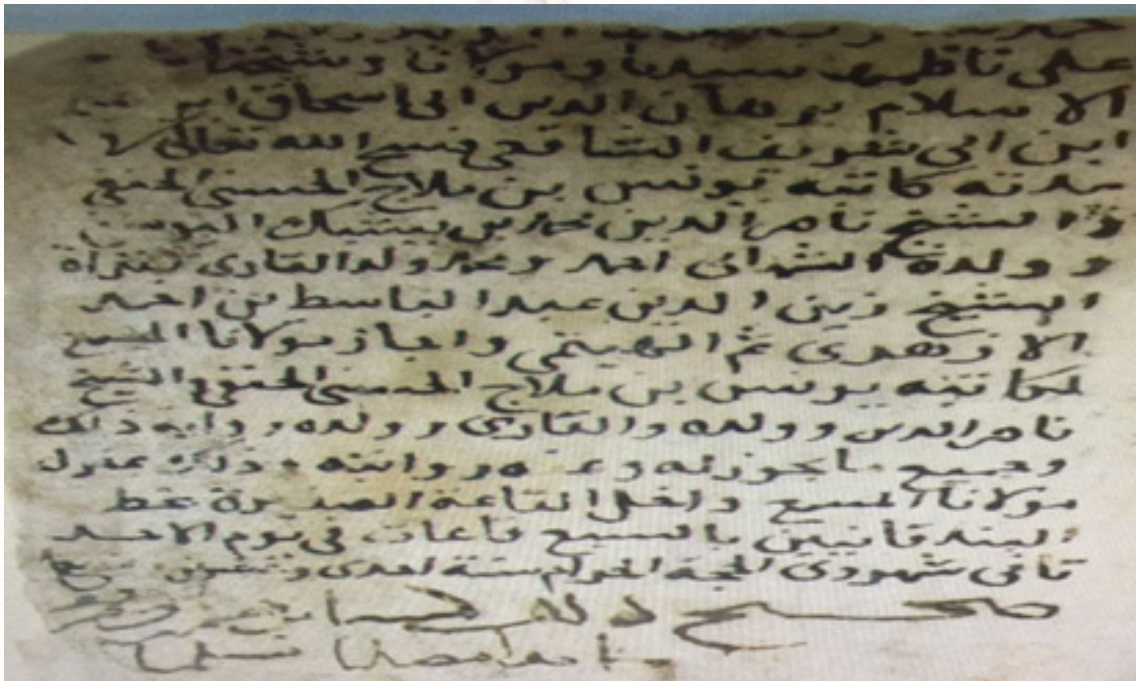 الحمد لله رب
على ناظمها سيدنا ومولانا وشيخنا
الاسلام برهان الدين ابى اسحاق ابر
ابن ابى شريف الشافعى فسح الله تعالى
مدته كاتبه يونس بن ملاج الحسنى الحنفى
والشيخ ناصر الدين محمد بن يشبك اليوسفى
وولده الشهابى احمد ومحمد ولد القارى بقراة
الشيخ زين الدين عبد الباسط بن احمد
الازهرى ثم الهيتمى واجاز مولانا المسمع
لكاتبه يونس بن ملاج الحسنى الحنفى والشيخ
ناصر الدين وولده والقارى وولده رواية ذلك
وجميع ما يجوز له وعنه روايته وذلك بمنزل
مولانا المسمع داخل القاعة الصغيرة بخط
البندقانيين بالسبع قاعات فى يوم الاحد
ثانى شهر ذى الحجة الحرام سنة احدى وتسعين
صحيح ذلك